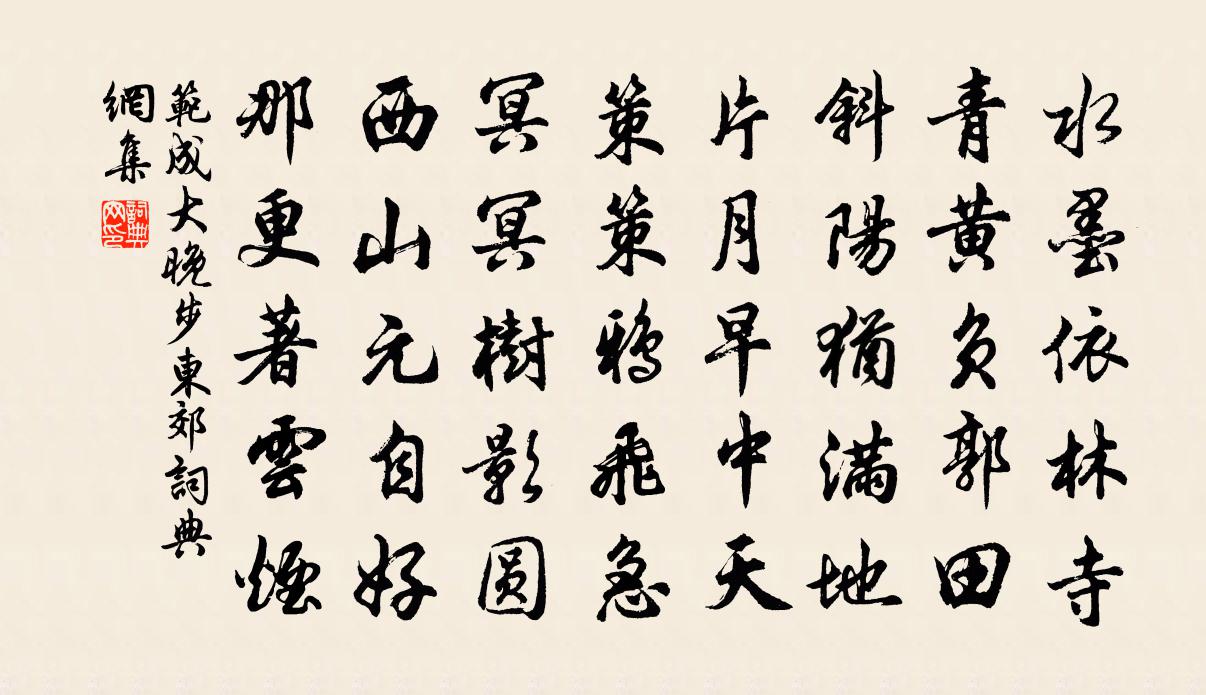 水墨依林寺
青黃負郭田
斜陽猶滿地
片月早中天
策策鴉飛急
冥冥樹影圓
西山元自好
那更著雲煙
範成大晚步東郊詞典
網集
詞典
网印